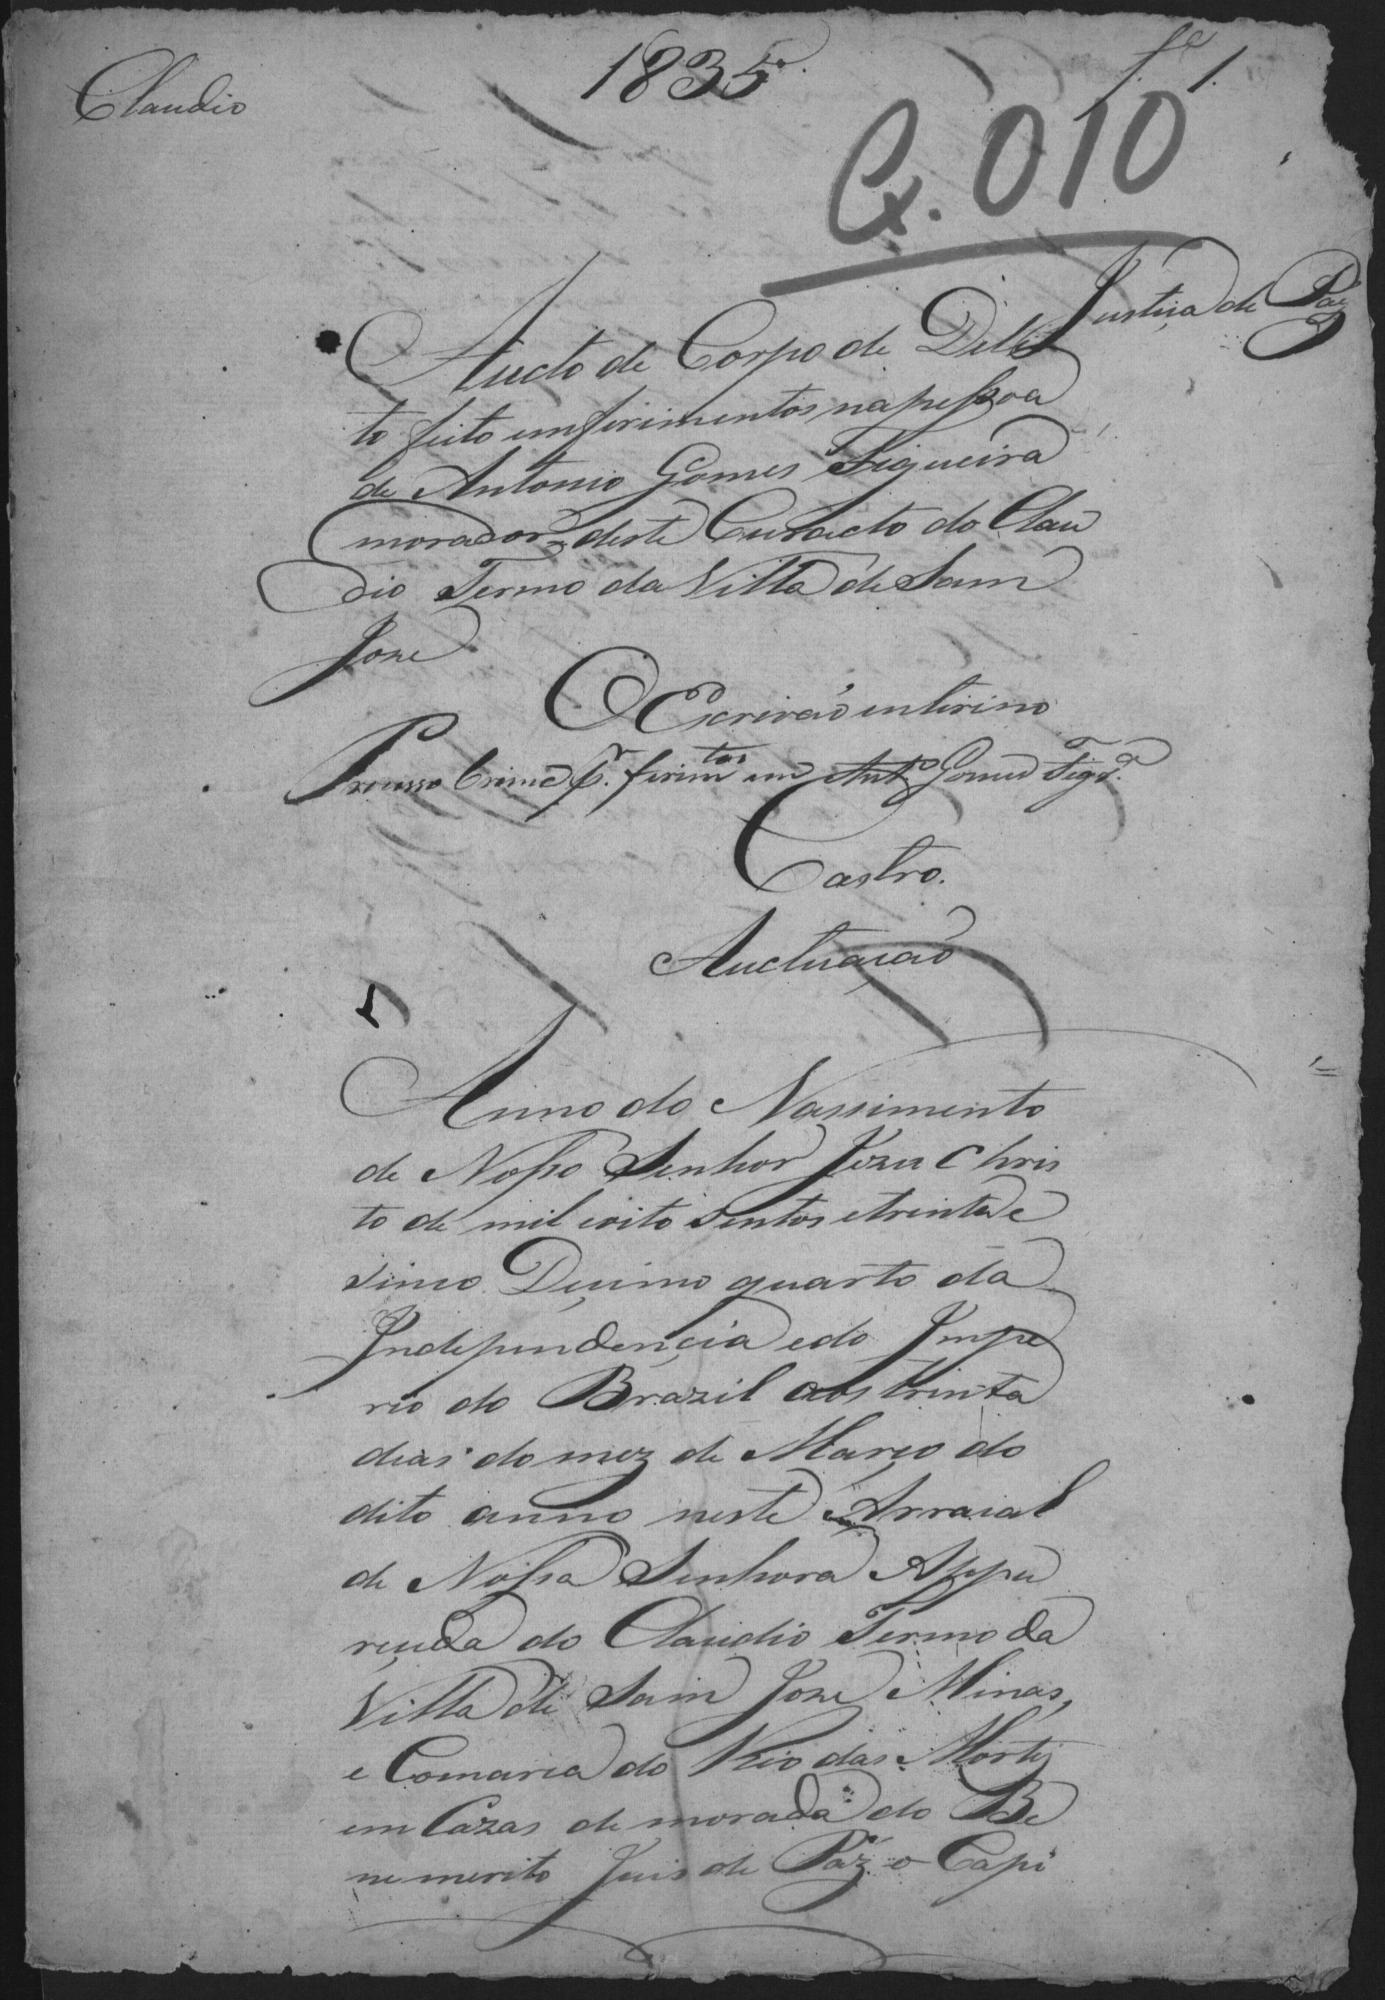 Claudio
1835
fe 1.
Cx. 010
Justiça de Paz
Aucto de Corpo de Delic
to feito em firimentos na peſsoa
de Antonio Gomes Figueira
morador deste Curacto do Clau
dio Termo da Villa de Sam
Joze
O Escrivão interino
Processo Crime Pr. firimtos em Anto Gomes Figra.
Castro.
Auctuação
Anno do Nassimento
de Noſso Senhor Jezus Chris
to de mil eoito sentos etrinta e
sinco Deçimo quarto da
Independençia edo Impe
rio do Brazil aos trinta
dias do mez de Março do
dito anno neste Arraial
de Noſsa Senhora Appa
reçida do Claudio Termo da
Villa de Sam Joze Minas,
e Comarca do Rio das Mortes
em Cazas de morada do Be
nemerito Juis de Paz o Capi